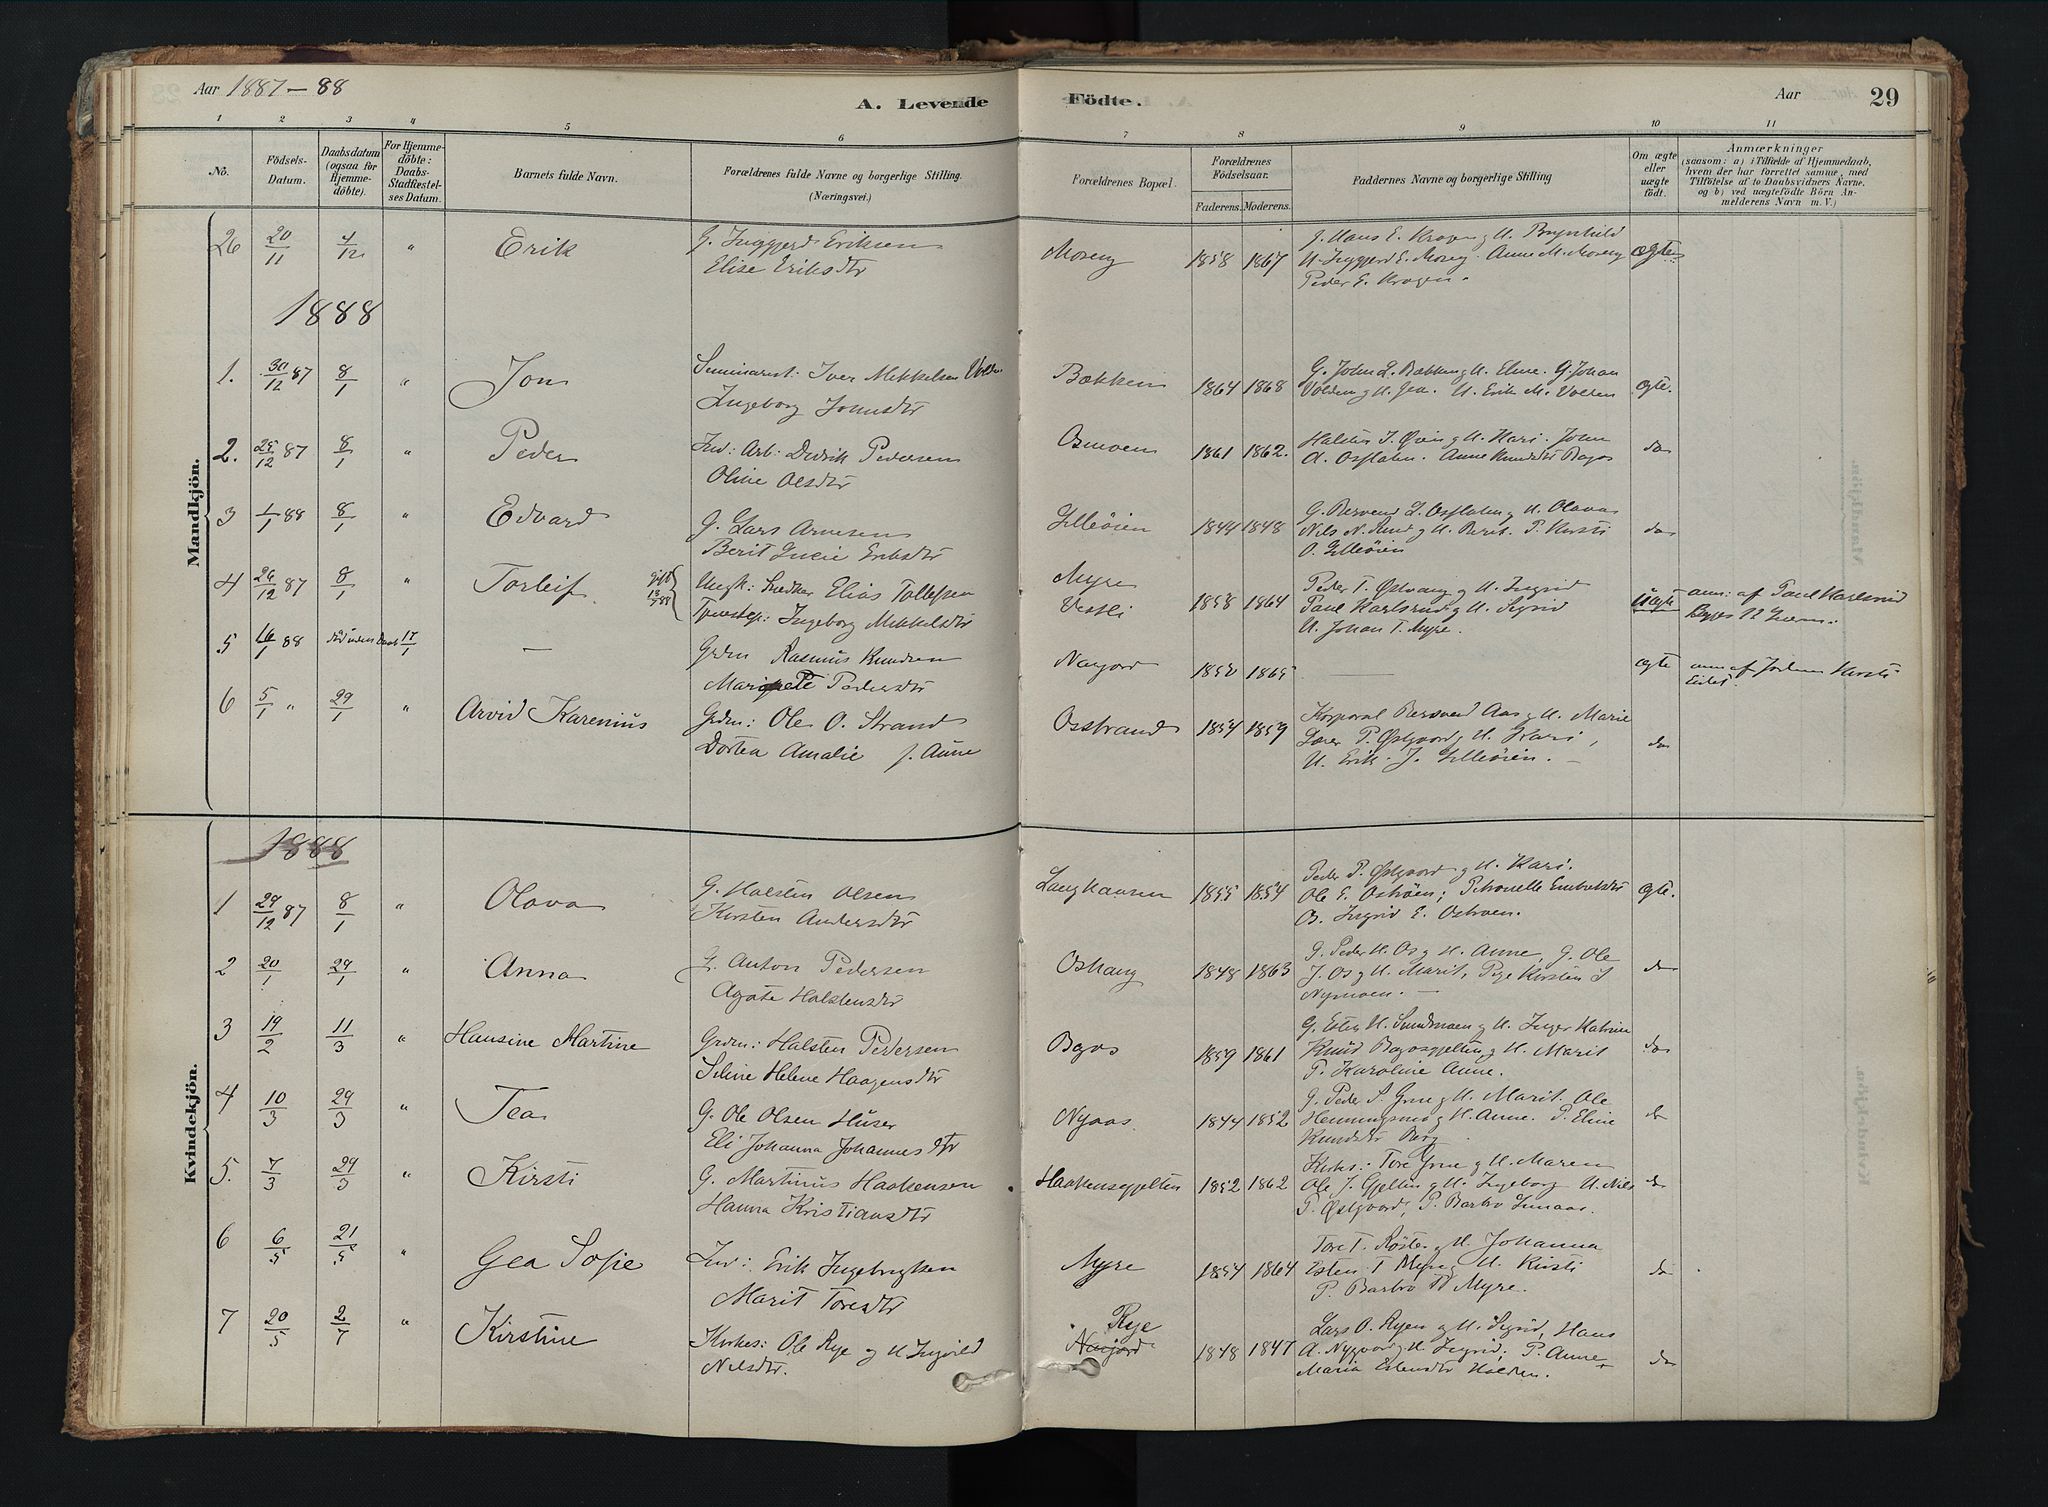 Aar 1887-88
A. Levende Födte.
Aar 29
1 2 3 4 5 6 7 8 9 10 11
No.
Födsels-
Datum.
Daabsdatum
(ogsaa for
Hjemme-
döbte).
For Hjemme-
döbte:
Daabs-
Stadfæstel-
ses Datum.
Barnets fulde Navn.
Forældrenes fulde Navne og borgerlige Stilling.
(Næringsvei.)
Forældrenes Bopæl.
Forældrenes
Födselsaar.
Faderens. Moderens.
Faddernes Navne og borgerlige Stilling
Om ægte
eller
uægte
født.
Anmærkninger
(saasom: a) i Tilfælde af Hjemmedaab,
hvem der har forrettet samme, med
Tilföielse af to Daabsvidners Navne.
og b) ved uægtefödte Börn An-
melderens Navn m. V.)
Mandkjön.
26 20/11 4/12 " Erik
G. Inggjerd Eriksen
Elise Eriksdtr
Moreng 1858 1867
G. Hans E. Kroken g H. Brynhild
U. Inggjerd E. Moreng. Anne M. Moreng
Peder E. Krogen.
ægte
1888
1. 30/12 87 8/1 " Jon
Seminarist: Iver Mikkelsen Volden
Ingeborg Johnsdtr
Bækken 1864 1868
G. John L. Bækken g H. Eline. G. Johan
Volden g H. Gea. U. Erik M. Volden
ægte.
2. 25/12 87 8/1 " Peder
Ind: Arb: Didrik Pedersen
Oline Olsdtr
Osmoen 1861 1862.
Halsten J. Øien g H. Kari. John
A. Osflaten. Anne Knudsdtr Bagos
do
3 1/1 88 8/1 " Edvard
G. Lars Arnesen
Berit Lucie Eriksdtr
Lilleöien 1844 1848
G. Bersvend L. Osflaten g H. Olava
Nils N. Rund g H. Berit. P. Kirsti
O. Lilleöien
do
4 26/12 87 8/1 " Torleif
gift 13/7 88
Ungk: Snedker Elias Tollefsen
Tjenestep: Ingeborg Mikkelsdtr
Myre
Vestli
1858 1864
Peder T. Østvang g H. Ingrid
Paul Karlsrud g H. Sigrid
U. Johan T. Myre.
Uægte
anm: af Paul Karlsrud
5 16/1 88 død uden Daab 17/1 —
Grdm Rasmus Knudsen
Marit Pedersdtr
Naijord 1850 1865
—
ægte
anm af Jordem Kirsti
Eidet.
6 5/1 " 29/1 " Arvid Karenius
Grdm: Ole O. Strand
Dortea Amalie f. Aune
Osstrand 1854 1859
Korporal Bersvend Aas g H. Marie
Lærer P. Østgaard g H. Kari,
U. Erik J. Lilleöien. —
do
Kvindekjön.
1888
1 29/12 87 8/1 " Olava
G. Halsten Olsen
Kirsten Andersdtr
Langhaugen 1855 1854
Peder P. Østgaard g H. Kari.
Ole E. Ostrøen; Petronelle Embretsdtr
B. Ingrid E. Ostroen.
ægte.
2 20/1 29/1 " Anna
G. Anton Pedersen
Agate Halstensdtr
Oshaug 1848 1863
G. Peder H. Os g H. Anne, G. Ole
J. Os g H. Marit, Pige Kirsten J
Nymoen. —
do
3 19/2 11/3 " Hansine Martine
Grdm: Halsten Pedersen
Seline Helene Haagensdtr
Bagos 1859 1861
G. Esten H. Sundmoen g H. Inger Katrine
Knud Bagosgjelten g H. Marit
P. Karoline Anne.
do
4 10/3 29/3 " Tea
G. Ole Olsen Huser
Eli Johanna Johannesdtr
Nyaas 1844 1852
G. Peder S. Grue g H. Marit. Ole
Henningsmo g H. Anne. P. Eline
Knudsdtr Berg
do
5. 7/3 29/3 " Kirsti
G. Martinus Haakensen
Hanna Kristiansdtr
Haakensgjelten 1852 1862
Kirkes: Tore Grue g H. Maren
Ole J. Gjelten g H. Ingeborg U. Nils
P. Østgaard, P. Barbro Lunaas.
do
6 6/5 21/5 " Gea Sofie
Ind: Erik Ingebrigtsen
Marit Toresdtr
Myre 1854 1864
Tore T. Røsten g H. Johanna
Esten T Myre g H. Kirsti
P. Barbro T Myre.
do
7 20/5 2/7 " Kirstine
Kirkes: Ole Rye og H Ingvild
Nilsdtr.
Rye
Naijord
1848 1847
Lars O. Ryen g H. Sigrid, Hans
A. Nygaard g H. Ingrid; P. Anne
Maria Estensdtr Volden.
do